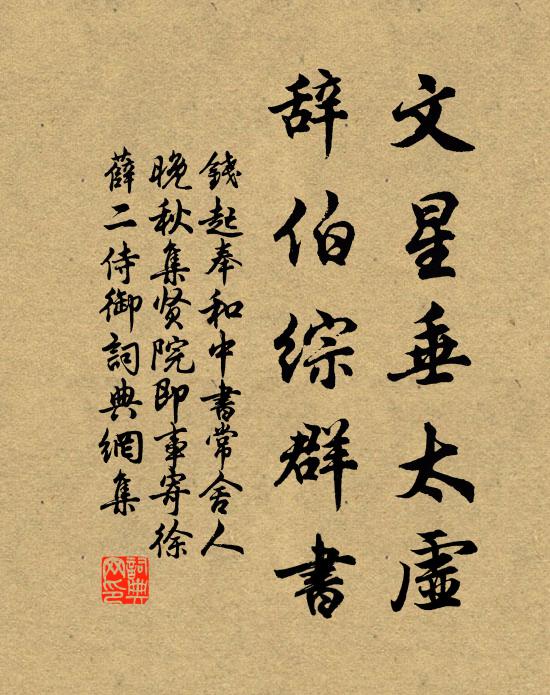 文星垂太虚
辞伯综群書
錢起奉和中書常舍人
晚秋集贤院即事寄徐
薛二侍御詞典網集
詞典网印